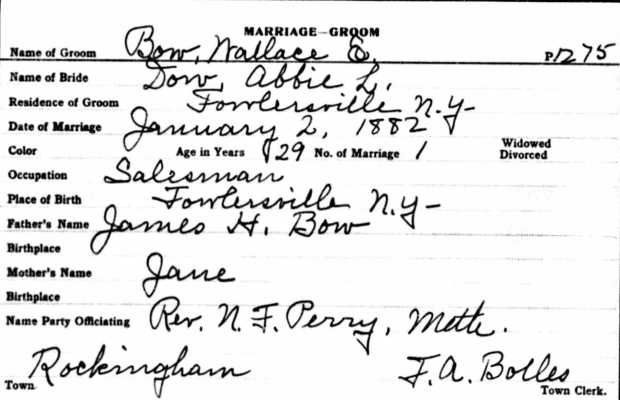 MARRIAGE—GROOM
Name of Groom Bow, Wallace E. P1275
Name of Bride Dow, Abbie L.
Residence of Groom Fowlersville N.Y-
Date of Marriage January 2, 1882
Color Age in Years 29 No. of Marriage 1 Widowed Divorced
Occupation Salesman
Place of Birth Fowlersville N.Y-
Father's Name James H. Bow
Birthplace
Mother's Name Jane
Birthplace
Name Party Officiating Rev. N. F. Perry, Meth.
Town Rockingham F. A. Bolles Town Clerk.